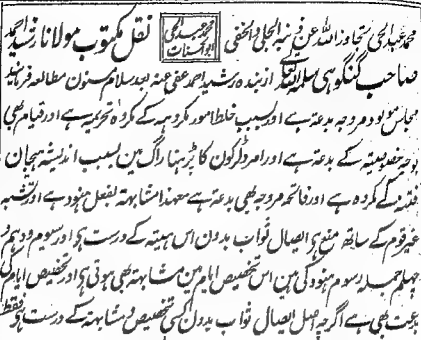 محمد عبد الحی تجاوز اللہ عن ذنبہ الجلی والخفی محمد عبد الحی ابو الحسنات نقل مکتوب مولانا رشید احمد
صاحب گنگوہی سلمہ اللہ تعالی از بندہ رشید احمد عفی عنہ بعد سلام مسنون مطالعہ فرمانید
مجلس مولود مروجہ بدعۃ ہے اور بسبب خلط امور مکروہہ کے مکروہ تحریمہ ہے اور قیام بھی
بوجہ خصوصیۃ کے بدعۃ ہے اور امرد لڑکون کا پڑہنا راگ مین بسبب اندیشہ ہیجان
فتنہ کے مکروہ ہے اور فاتحہ مروجہ بھی بدعۃ ہے معہذا مشابہتہ بفعل ہنود ہے اور تشبہ
غیر قوم کے ساتھ منع ہے ایصال ثواب بدون اس ہیئۃ کے درست ہے اور سوم و دہم و
چہلم جملہ رسوم ہنود کی ہین اس تخصیص ایام مین مشابہتہ بھی ہوتی ہے اور تخصیص ایام کی
بدعت بھی ہے اگرچہ اصل ایصال ثواب بدون کسی تخصیص و مشابہتہ کے درست ہے فقط